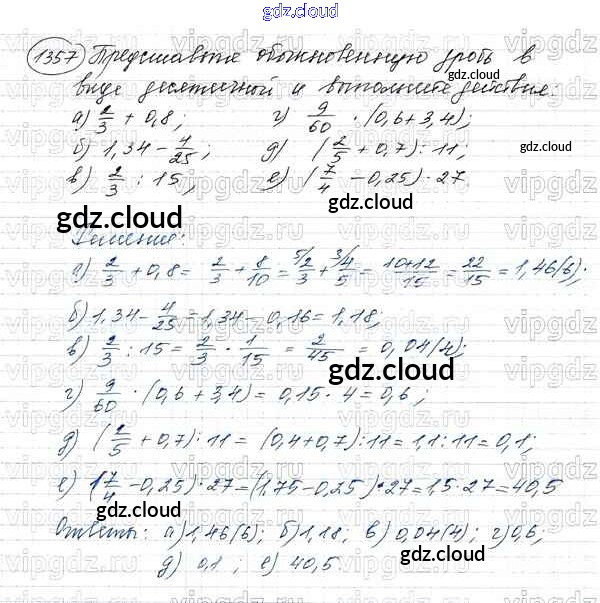 gdz.cloud
1357 Представьте обыкновенную дробь в
виде десятичной и выполните действия:
а) 2/3 + 0,8; г) 9/60 · (0,6 + 3,4);
б) 1,34 − 4/25; д) (2/5 + 0,7) : 11;
в) 2/3 : 15; е) (7/4 − 0,25) · 27
Решение:
а) 2/3 + 0,8 = 2/3 + 8/10 = 5/ 2/3 + 3/ 4/5 = 10+12/15 = 22/15 = 1,46(6);
б) 1,34 − 4/25 = 1,34 − 0,16 = 1,18;
в) 2/3 : 15 = 2/3 · 1/15 = 2/45 = 0,04(4);
г) 9/60 · (0,6 + 3,4) = 0,15 · 4 = 0,6;
д) (2/5 + 0,7) : 11 = (0,4 + 0,7) : 11 = 1,1 : 11 = 0,1;
е) (7/4 − 0,25) · 27 = (1,75 − 0,25) · 27 = 1,5 · 27 = 40,5
Ответы: а) 1,46(6); б) 1,18; в) 0,04(4); г) 0,6;
д) 0,1; е) 40,5